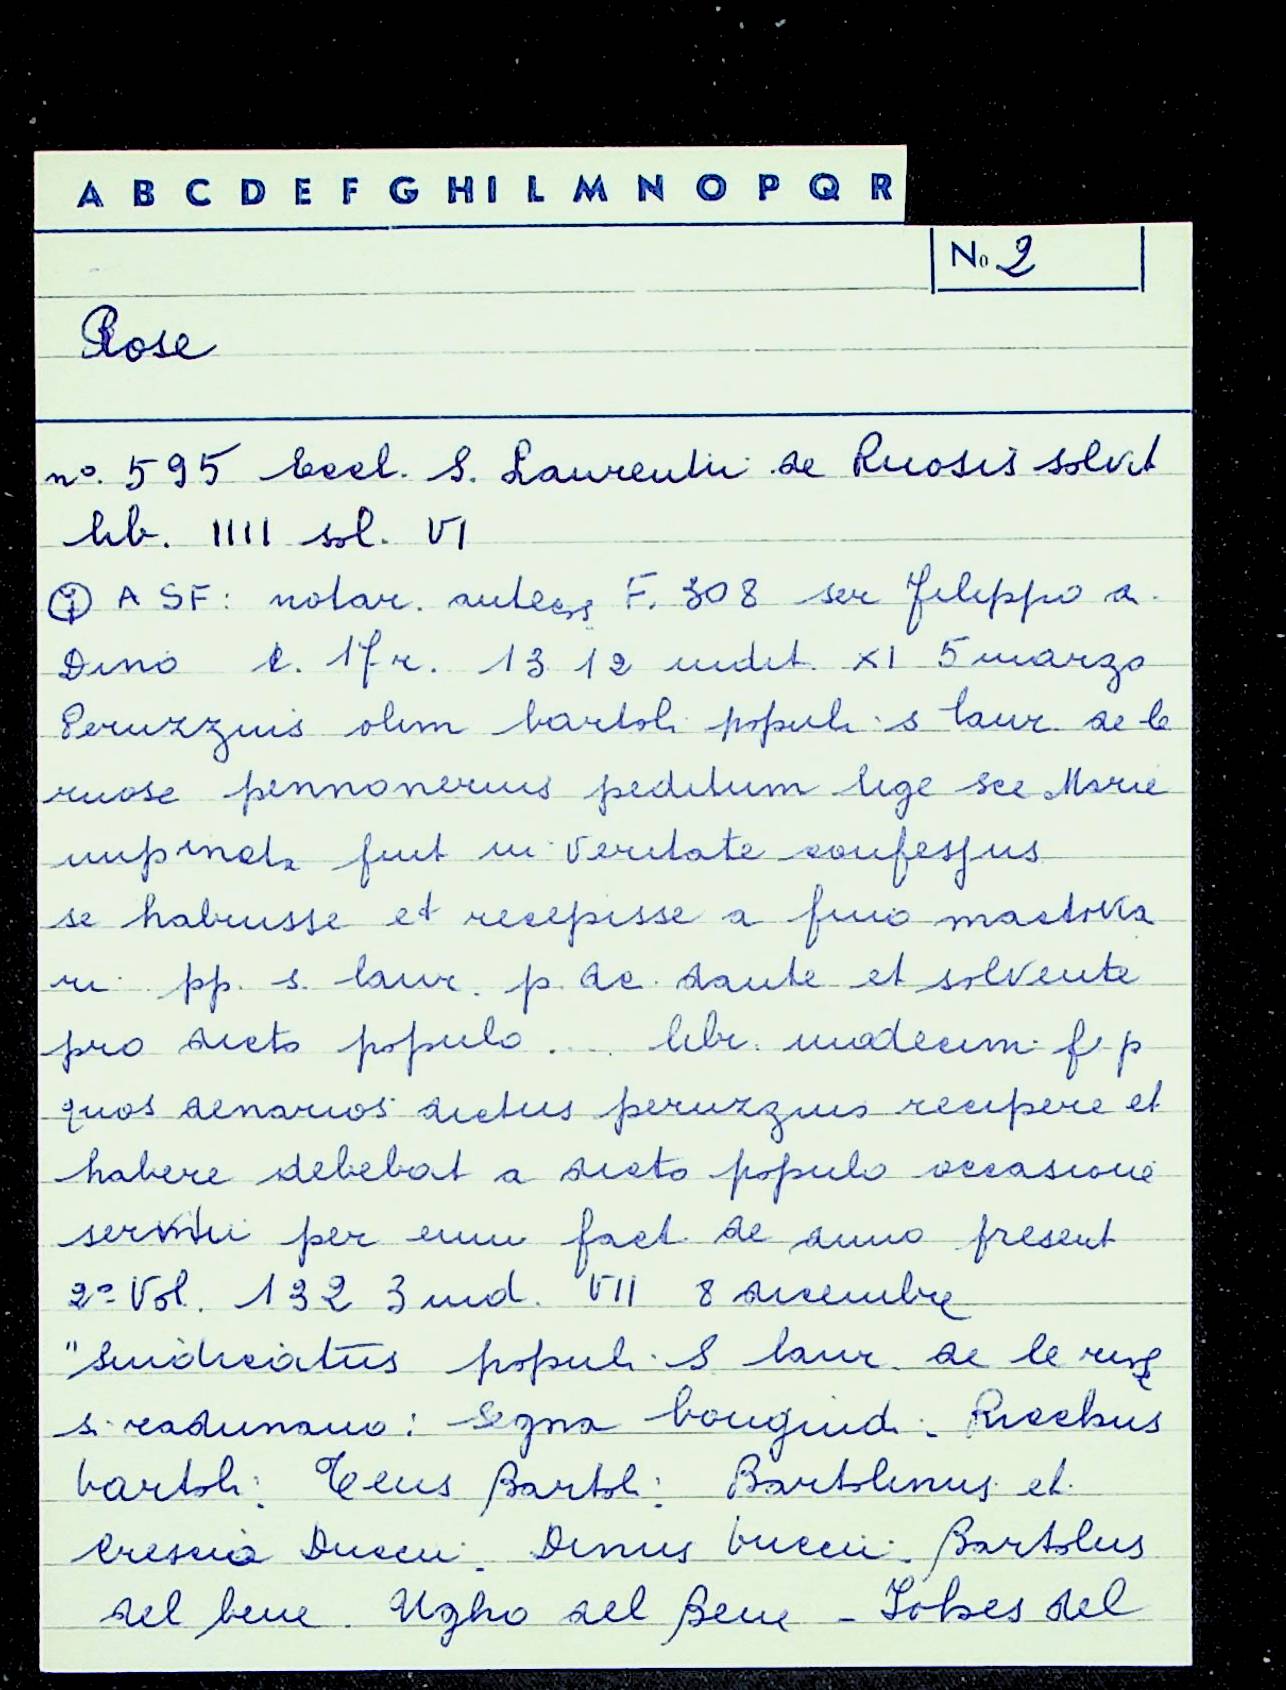 A B C D E F G H I L M N O P Q R
No 2
Rose
n°. 595 Eccl. S. Laurentii de Ruosis solvit
lib. IIII sol. VI
① ASF: notar. antecos F. 308 ser Filippo a.
Dino c. 17 r. 1312 indit. XI 5 marzo
Peruzzuis olim bartoli populi s laur. de le
ruose pennonerius peditum lege sce Marie
inpineta fuit in veritate confessus
se habuisse et recepisse a fino
ri pp. s. laur. p. de. dante et solvente
pro dicto populo .... libr. undecim f p
quos denarios dictus peruzzus recipere et
habere debebat a dicto populo occasione
servitii per eum fact. de anno present
2° Vol. 1323 ind. VII 8 dicembre
"Sindicatus populi S laur. de le
si radunano: Segna bongiudi. Ricchus
bartoli: Ceus Bartoli: Bartolinus et
Crescia Duccii. Dinus buccii. Bartolus
del bene. Ugho del Bene - del